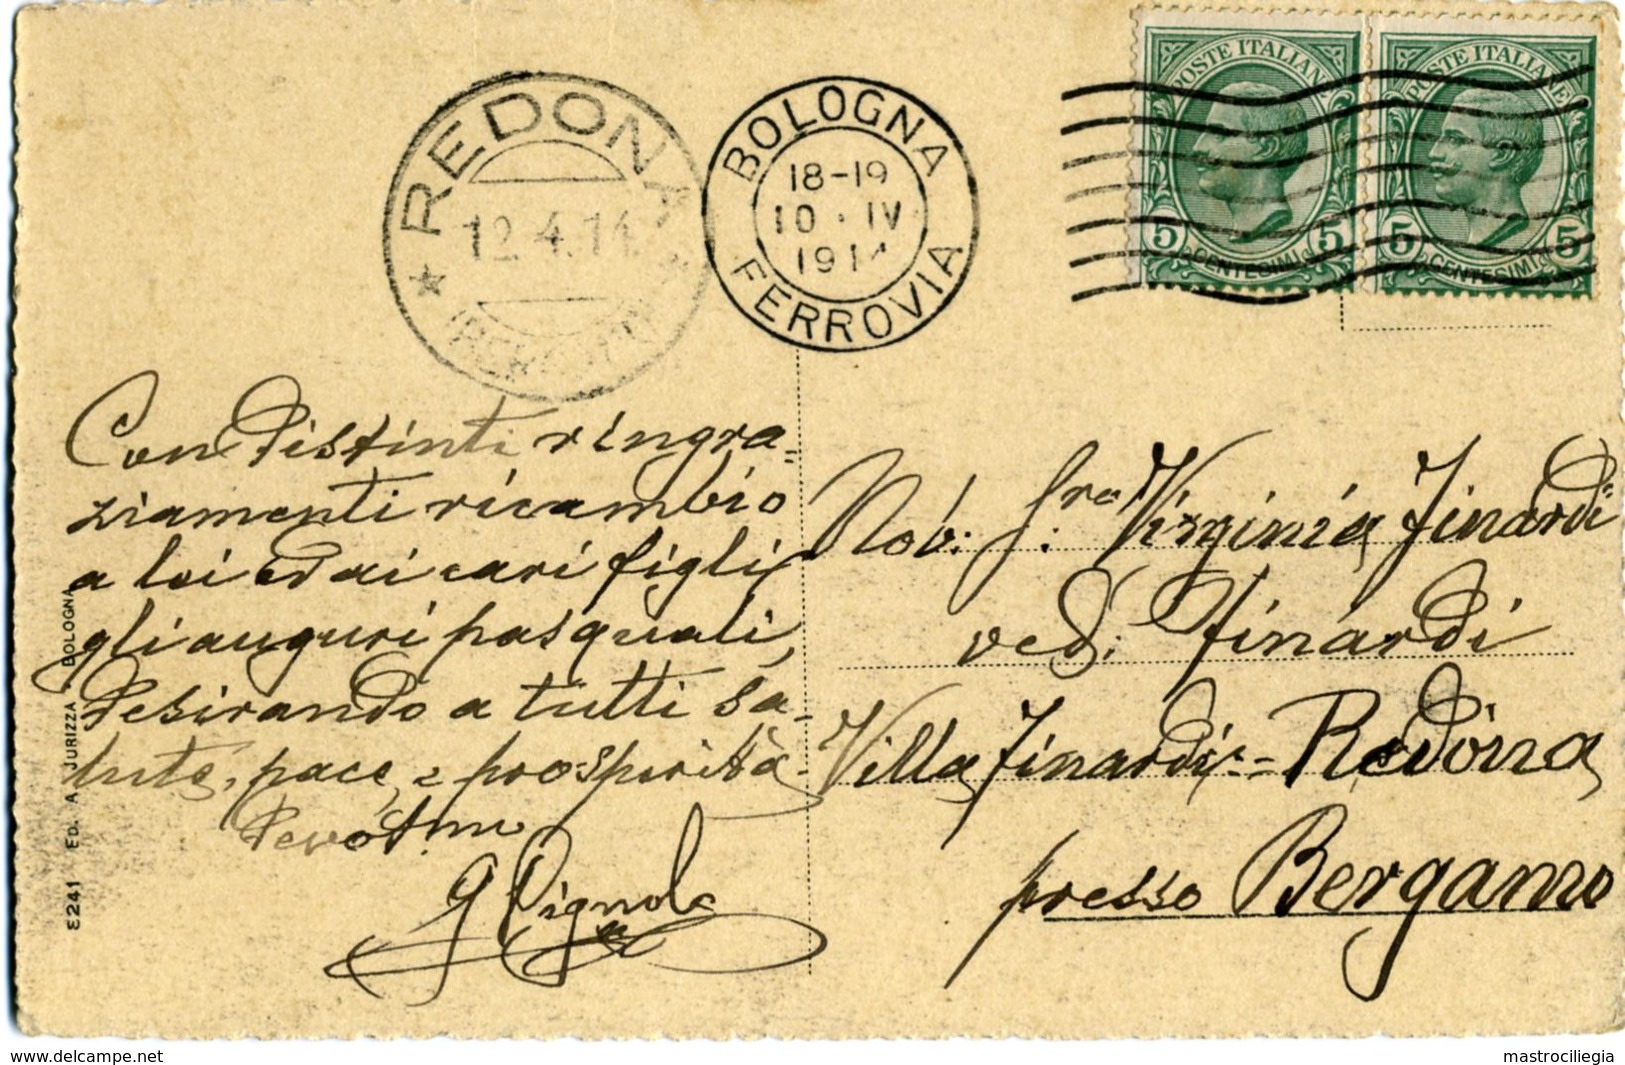 REDONA
12.4.14
(BERGAMO)
BOLOGNA
18-19
10·IV
1914
FERROVIA
POSTE ITALIANE
5 CENTESIMI 5
POSTE ITALIANE
5 CENTESIMI 5
Con distinti ringra=
ziamenti ricambio
a lei ed ai cari figli
gli auguri pasquali,
desirando a tutti sa-
lute, pace, e prosperità.
Devot.mo
G Vignola
Nob: S.ra Virginia Finardi
ved: Finardi
Villa Finardi = Redona
presso Bergamo
E241 ED. A. JURIZZA - BOLOGNA
mastrociliegia
© DELCAMPE.NET mastrociliegia